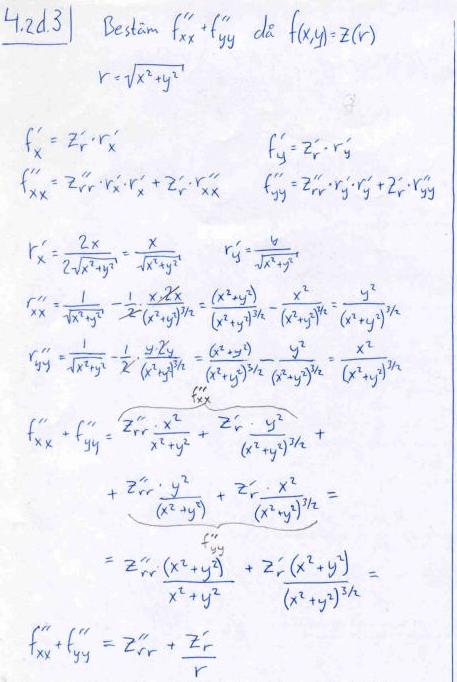 4.2d.3 Bestäm f''xx + f''yy då f(x,y) = z(r)
r = √(x²+y²)
f'x = z'r · r'x f'y = z'r · r'y
f''xx = z''rr · r'x · r'x + z'r · r''xx f''yy = z''rr · r'y · r'y + z'r · r''yy
r'x = 2x/(2√(x²+y²)) = x/√(x²+y²) r'y = y/√(x²+y²)
r''xx = 1/√(x²+y²) - 1/2 · x·2x/(x²+y²)^(3/2) = (x²+y²)/(x²+y²)^(3/2) - x²/(x²+y²)^(3/2) = y²/(x²+y²)^(3/2)
r''yy = 1/√(x²+y²) - 1/2 · y·2y/(x²+y²)^(3/2) = (x²+y²)/(x²+y²)^(3/2) - y²/(x²+y²)^(3/2) = x²/(x²+y²)^(3/2)
f''xx
f''xx + f''yy = z''rr · x²/(x²+y²) + z'r · y²/(x²+y²)^(3/2) +
+ z''rr · y²/(x²+y²) + z'r · x²/(x²+y²)^(3/2) =
f''yy
= z''rr · (x²+y²)/(x²+y²) + z'r (x²+y²)/(x²+y²)^(3/2) =
f''xx + f''yy = z''rr + z'r/r